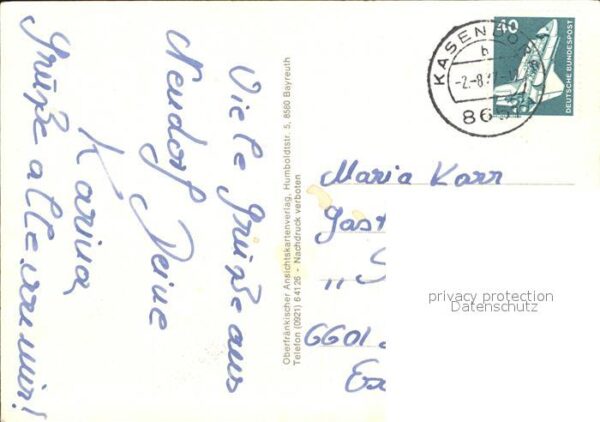 Viele Grüße aus
Neudorf Deine
Karina
Grüße alle von mir!
Oberfränkischer Ansichtskartenverlag, Humboldtstr. 5, 8580 Bayreuth
Telefon (0921) 64126 - Nachdruck verboten
KASENDORF
b
-2.-8.
865
40
DEUTSCHE BUNDESPOST
Maria Karr
Gast
6601
privacy protection
Datenschutz